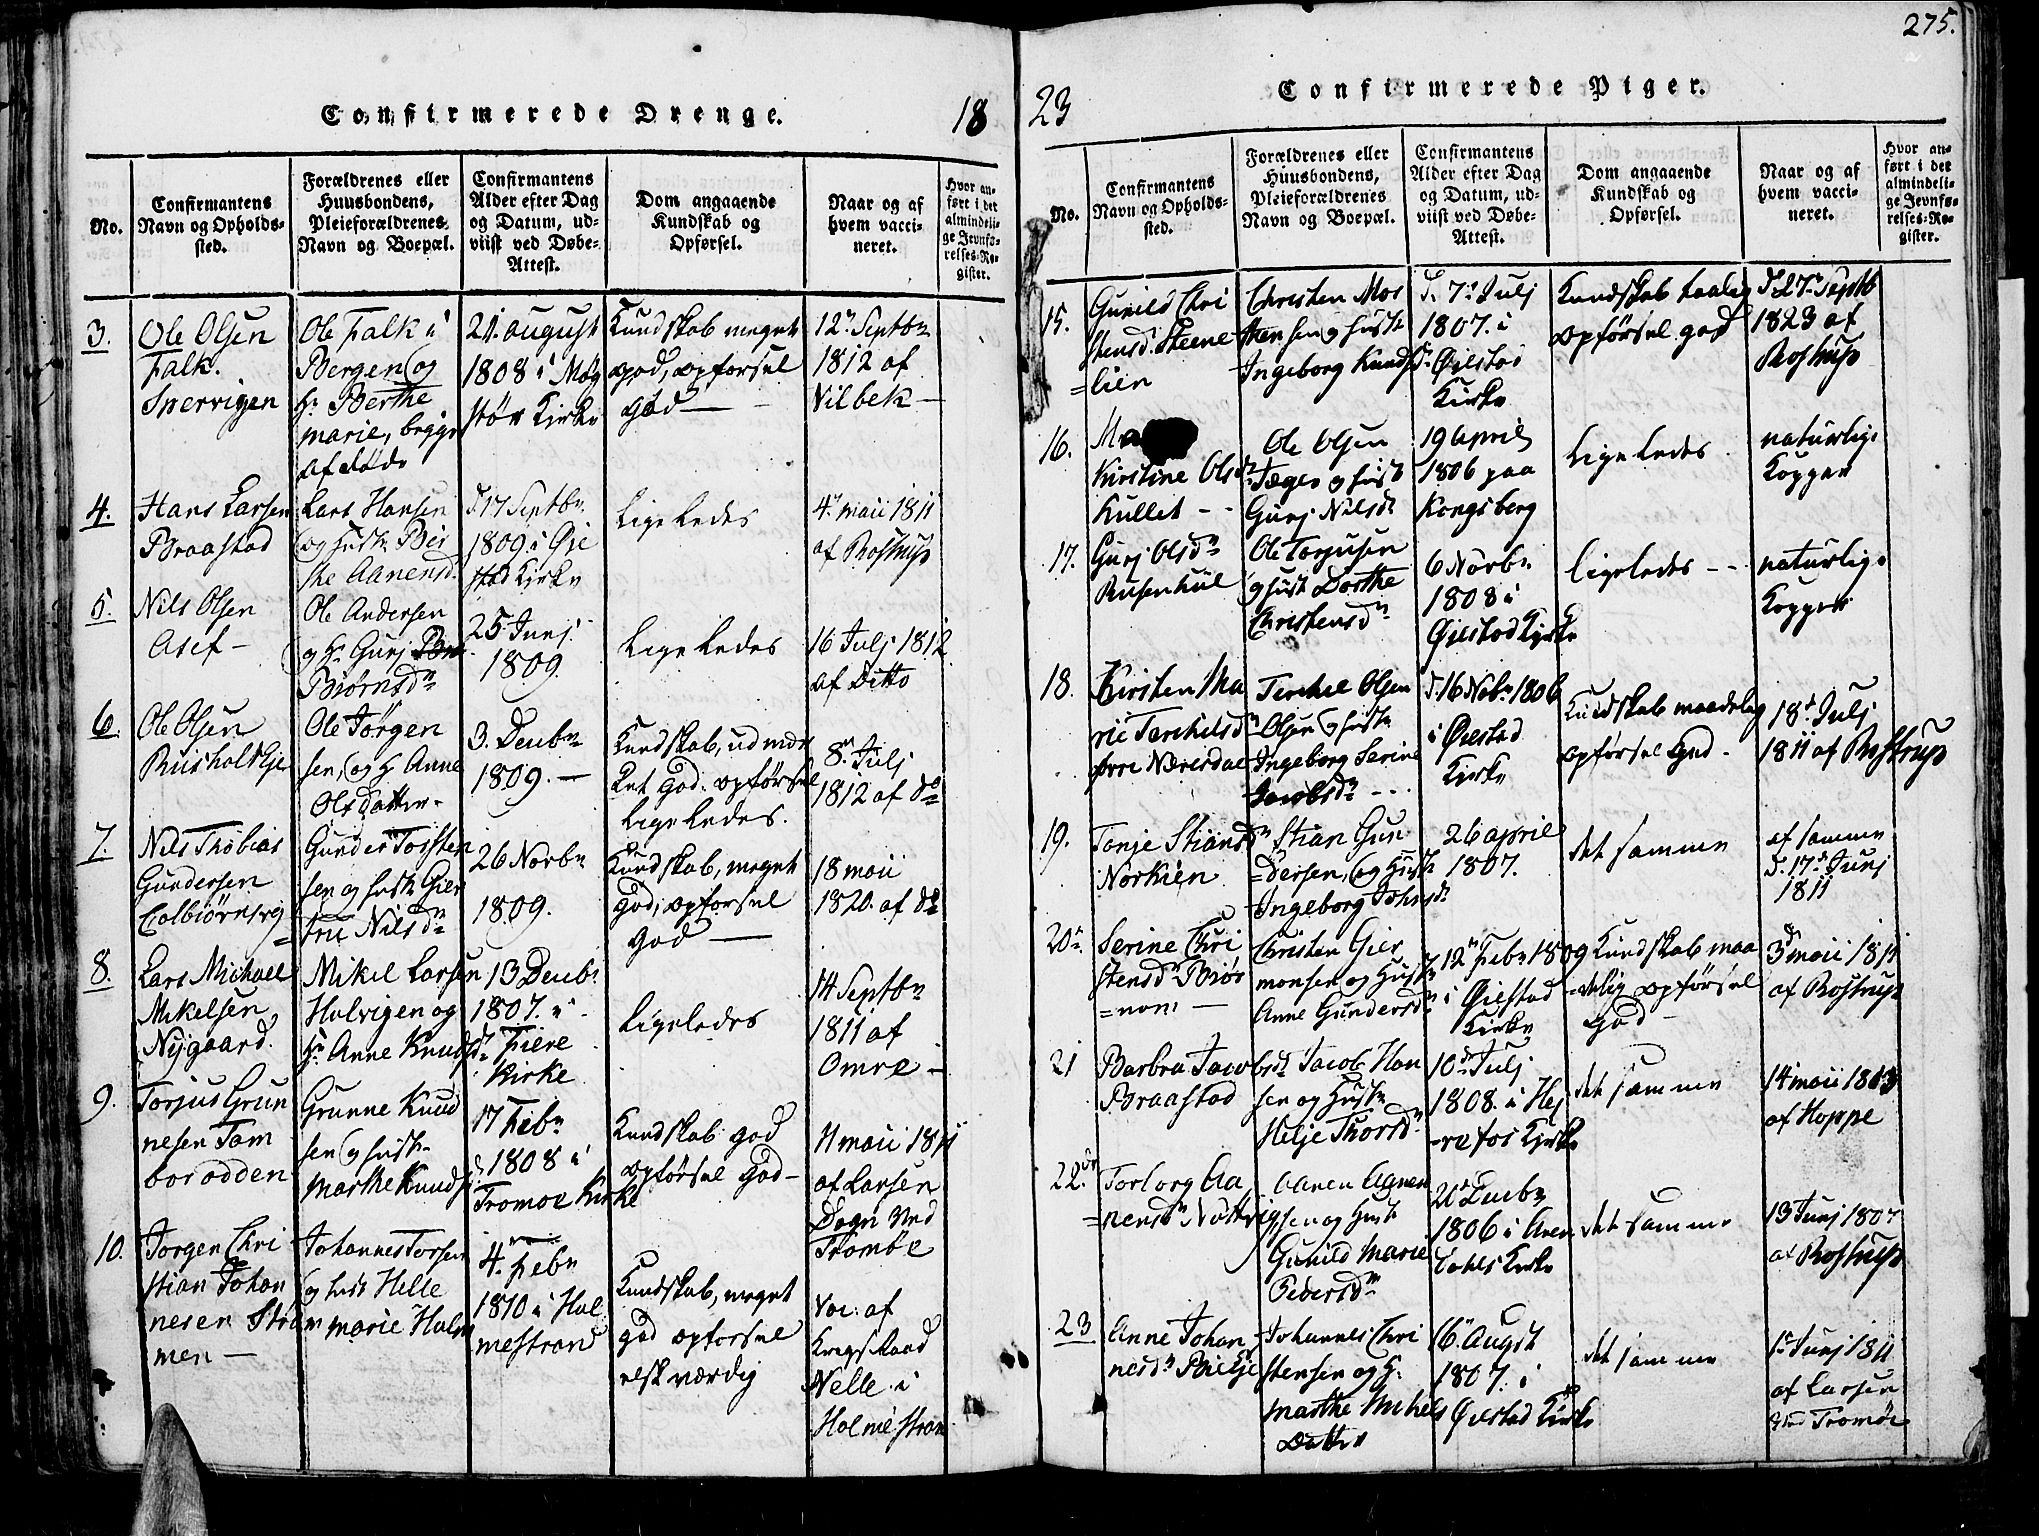 275.
Confirmerede Drenge.
1823
Confirmerede Piger.
No.
Confirmantens
Navn og Opholds-
sted.
Forældrenes eller
Huusbondens,
Pleieforældrenes
Navn og Boepæl.
Confirmantens
Alder efter Dag
og Datum, ud-
viist ved Døbe-
Attest.
Dom angaaende
Kundskab og
Opførsel.
Naar og af
hvem vacci-
neret.
Hvor an-
ført i det
almindeli-
ge Jevnfø-
relses-Re-
gister.
3.
Ole Olsen
Falk.
Snervigen
Ole Falk i
Bergen og
H. Berthe
marie, begge
afdøde
21. august
1808 i
Kirke
Kundskab meget
god, opførsel
god —
12. Septbr
1812 af
Nilbek —
4.
Hans Larsen
Braastad
Lars Hansen
og hust. Bir
the Aanensd.
d. 17 Septbr
1809 i Øie
stad Kirke
Ligeledes
4. maii 1811
af Rostrup
5.
Nils Olsen
Asef —
Ole Andersen
og H. Gurj
Biørnsdr
25. Junj
1809.
Ligeledes
16 Julj 1812
af Ditto
6.
Ole Olsen
Ole Jørgen
sen, og H Anne
Olsdatter
3. Decbr
1809. —
Kundskab, udmær
ket god. opførsel
Ligeledes.
8. Julj
1812 af do
7.
Nils Thobias
Gundersen
Colbiørnsvig
Gunder Torsten
sen og hust. Gier
tru Nilsdr
26 Novbr
1809.
Kundskab, meget
god, opførsel
god —
18 maii
1820. af do
8.
Lars Michael
Mikelsen
Nygaard.
Mikel Larsen
Halvigen og
H. Anne Knudsd.
13 Decbr
1807. i
Fiere
Kirke
Ligeledes
14 Septbr
1811 af
Omre —
9.
Torjus Grun
nesen Tam
borodden
Grunne Knud
sen og hust.
Marthe Knudsd
17 Febr
1808 i
Tromøe Kirke
Kundskab god
opførsel god —
11 maii 1811
af Larsen
Sogn ved
Tromøe
10.
Jørgen Chri
stian Johan
nesen Strøm
men —
Johannes Torsen
og hust Helle
marie Holm
4. Febr
1810 i Hol
mestrand
Kundskab, meget
god opførsel
elskværdig
Vac. af
Krags Raad
Nelle i
Holmestran
No.
Confirmantens
Navn og Opholds-
sted.
Forældrenes eller
Huusbondens,
Pleieforældrenes
Navn og Boepæl.
Confirmantens
Alder efter Dag
og Datum, ud-
viist ved Døbe-
Attest.
Dom angaaende
Kundskab og
Opførsel.
Naar og af
hvem vacci-
neret.
Hvor an-
ført i det
almindeli-
ge Jevnfø-
relses-Re-
gister.
15.
Gunild Chri
stensd. Steene
=lien
Christen Mor
tensen og hust
Ingeborg Knudsd.
d. 7. Julj
1807. i
Øiestad
Kirke
Kundskab taalig
opførsel god
d. 27. Septb
1823 af
Rostrup
16.
Kirstine Olsd
Kullet - -
Ole Olsen
Jæger og hust
Gurj Nilsdr
19 april
1806 paa
Kongsberg
Ligeledes
naturlige
Kopper
17.
Gurj Olsdr
Rusenhul
Ole Torjusen
og hust Dorthe
Christensdr
6 Novbr
1808 i
Øiestad Kirke
ligeledes - -
naturlige
Kopper
18.
Kirsten Ma
rie Terkelsdr
øvre Næresdal
Terchel Olsen
Olsen og hust.
Ingeborg Serine
Jacobsdr - - -
d. 16 Nobr 1806
i Øiestad
Kirke
Kundskab maadelig
opførsel God -
18. Julj
1811 af Rostrup
19.
Tonje Stiansdr
Norkien
Stian Gun
=dersen, og Hust
Ingeborg Johnsdr
26 april
1807.
det samme
af samme
d. 17. Junj
1811
20.
Serine Chri
stensdr Biør
=nom —
Christen Gier
monsen og Hust
Anne Gundersdr
12 Febr 1809
i Øiestad
Kirke
Kundskab maa
delig opførsel
god -
3 maii 1811
af Rostrup
21
Barbra Jacobsd.
Braastad
Jacob Han
sen og Hust.
Helje Thorsdr
10 Julj
1808. i Hej
refos Kirke
det samme
14 maii 1813
af Hoppe
22.
Torborg Aa
=nensdr Nøttvig
Aanen Aanen
sen og Hust
Gunild Marie
Pedersdr
21 Decbr
1806 i Aren
dahls Kirke
det samme
13 Junj 1807
af Rostrup
23
Anne Johan
nesdr
Johannes Chri
stensen og H.
Marthe Mikels
Datter
16. Augst
1807. i
Øiestad Kirke
det samme
1. Junj 1811
af Larsen
ved Tromøe